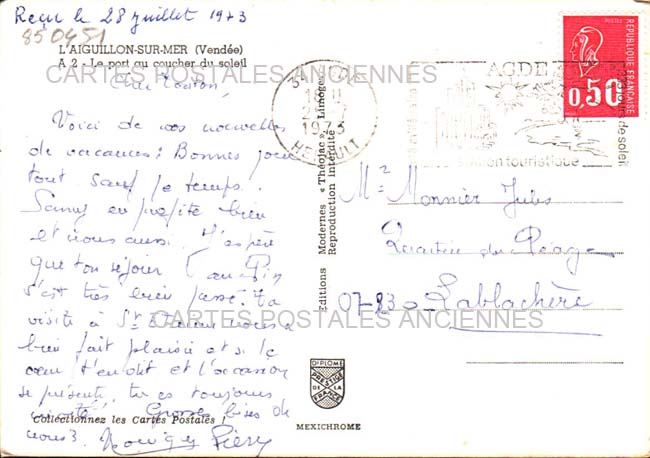 Reçu le 28 juillet 1973
850451
L'AIGUILLON-SUR-MER (Vendée)
A 2 - Le port au coucher du soleil
CARTES POSTALES ANCIENNES
Cher Tonton,
Voici de nos nouvelles
de vacances : Bonnes pour
tout sauf le temps.
en profite bien
et nous aussi. J'espère
que ton séjour au Pin
s'est très bien passé. Ta
visite à St nous a
bien fait plaisir et si le
cœur t'en dit et l'occasion
se présente, tu es toujours
invité. Grosses bises de
nous 3.
Collectionnez les Cartes Postales !
Editions Modernes "Théojac", Limoges
Reproduction Interdite
1973
HERAULT
AGDE
station touristique
de soleil
REPUBLIQUE FRANCAISE
0,50
Mr Monnier Jules
Quartier du Péage
07830 Lablachère
CARTES POSTALES ANCIENNES
DIPLOME
PRESTIGE
DE LA
FRANCE
MEXICHROME